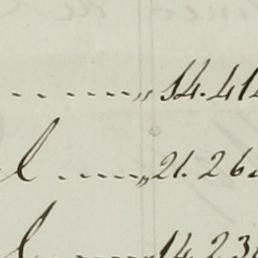 ......„14.41
l .....„21.26
l .....„14.23